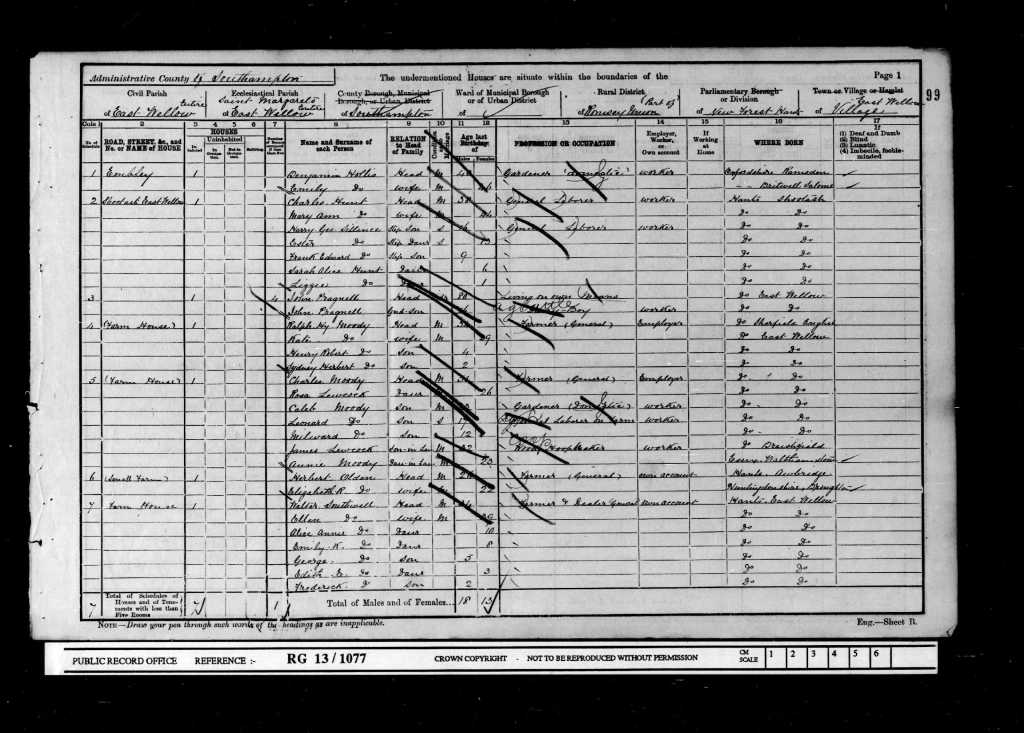 Administrative County of Southampton
The undermentioned Houses are situate within the boundaries of the
Page 1
99
Civil Parish
Ecclesiastical Parish
County Borough, Municipal Borough, or Urban District
Ward of Municipal Borough or of Urban District
Rural District
Parliamentary Borough or Division
Town or Village or Hamlet
Entire of East Wellow
Saint Margarets Entire of East Wellow
of Southampton
of
(Part of) of Romsey Union
of New Forest
East Wellow of Village
Cols 1 2 3 4 5 6 7 8 9 10 11 12 13 14 15 16 17
No. of Schedule
ROAD, STREET, &c., and No. or NAME of HOUSE
HOUSES
Inhabited
Uninhabited
In Occupation
Not in Occupation
Building
Name and Surname of each Person
RELATION to Head of Family
Age last Birthday of
Males
Females
PROFESSION OR OCCUPATION
Employer, Worker, or Own account
If Working at Home
WHERE BORN
If
(1) Deaf and Dumb
(2) Blind
(3) Lunatic
(4) Imbecile, feeble-minded
1 Embley 1 Benjamin Hollis Head M Gardener (Domestic) worker Oxfordshire Ramsden
Emily Do wife M Britwell Salome
2 Shootash East Wellow 1 Charles Hunt Head M 38 General Laborer worker Hants Shootash
Mary Ann Do wife Do Do
Harry Geo Sillence Step Son S 16 General Laborer worker Do Do
Ester Do Step Daur S 13 Do Do
Frank Edward Do Step Son 9 Do Do
Sarah Alice Hunt Daur 6 Do Do
Lizzie Do 1 Do Do
3 1 4 John Pragnell Head 80 Living on own Means Do East Wellow
John Pragnell Gnd-Son Boy worker Do Do
4 (Farm House) 1 Ralph Hy Moody Head M Farmer (General) Employer Do Sherfield English
Kate Do wife M 29 Do East Wellow
Henry Robert Do Son 4 Do Do
Sydney Herbert Do Son 2 Do Do
5 (Farm House) 1 Charles Moody Head M Farmer (General) Employer Do Do
Rosa Lewcock Daur 26 Do Do
Caleb Moody Son Gardener (Domestic) worker Do Do
Leonard Do Son S 17 Laborer on Farm worker Do Do
Milward Do Son 12 Do Do
James Lewcock Son-in-Law M 32 Hoopmaker worker Do
Annie Moody Daur-in-Law M 23 Essex Walthamstow
6 (Small Farm) 1 Herbert Olden Head M Farmer (General) own account Hants Awbridge
Elizabeth R Do wife 22 Huntingdonshire
7 Farm House 1 Walter Southwell Head M Farmer & Dealer own account Hants East Wellow
Ellen Do wife M Do Do
Alice Annie Do Daur 10 Do Do
Emily K. Do Daur 8 Do Do
George Do Son 5 Do Do
Edith Do Daur 3 Do Do
Frederick Do Son 2 Do Do
7 Total of Schedules of Houses and of Tenements with less than Five Rooms 7 1 Total of Males and of Females... 18 13
NOTE—Draw your pen through such words of the headings as are inapplicable.
Eng.—Sheet B.
PUBLIC RECORD OFFICE REFERENCE :- RG 13/1077 CROWN COPYRIGHT - NOT TO BE REPRODUCED WITHOUT PERMISSION CM SCALE 1 2 3 4 5 6